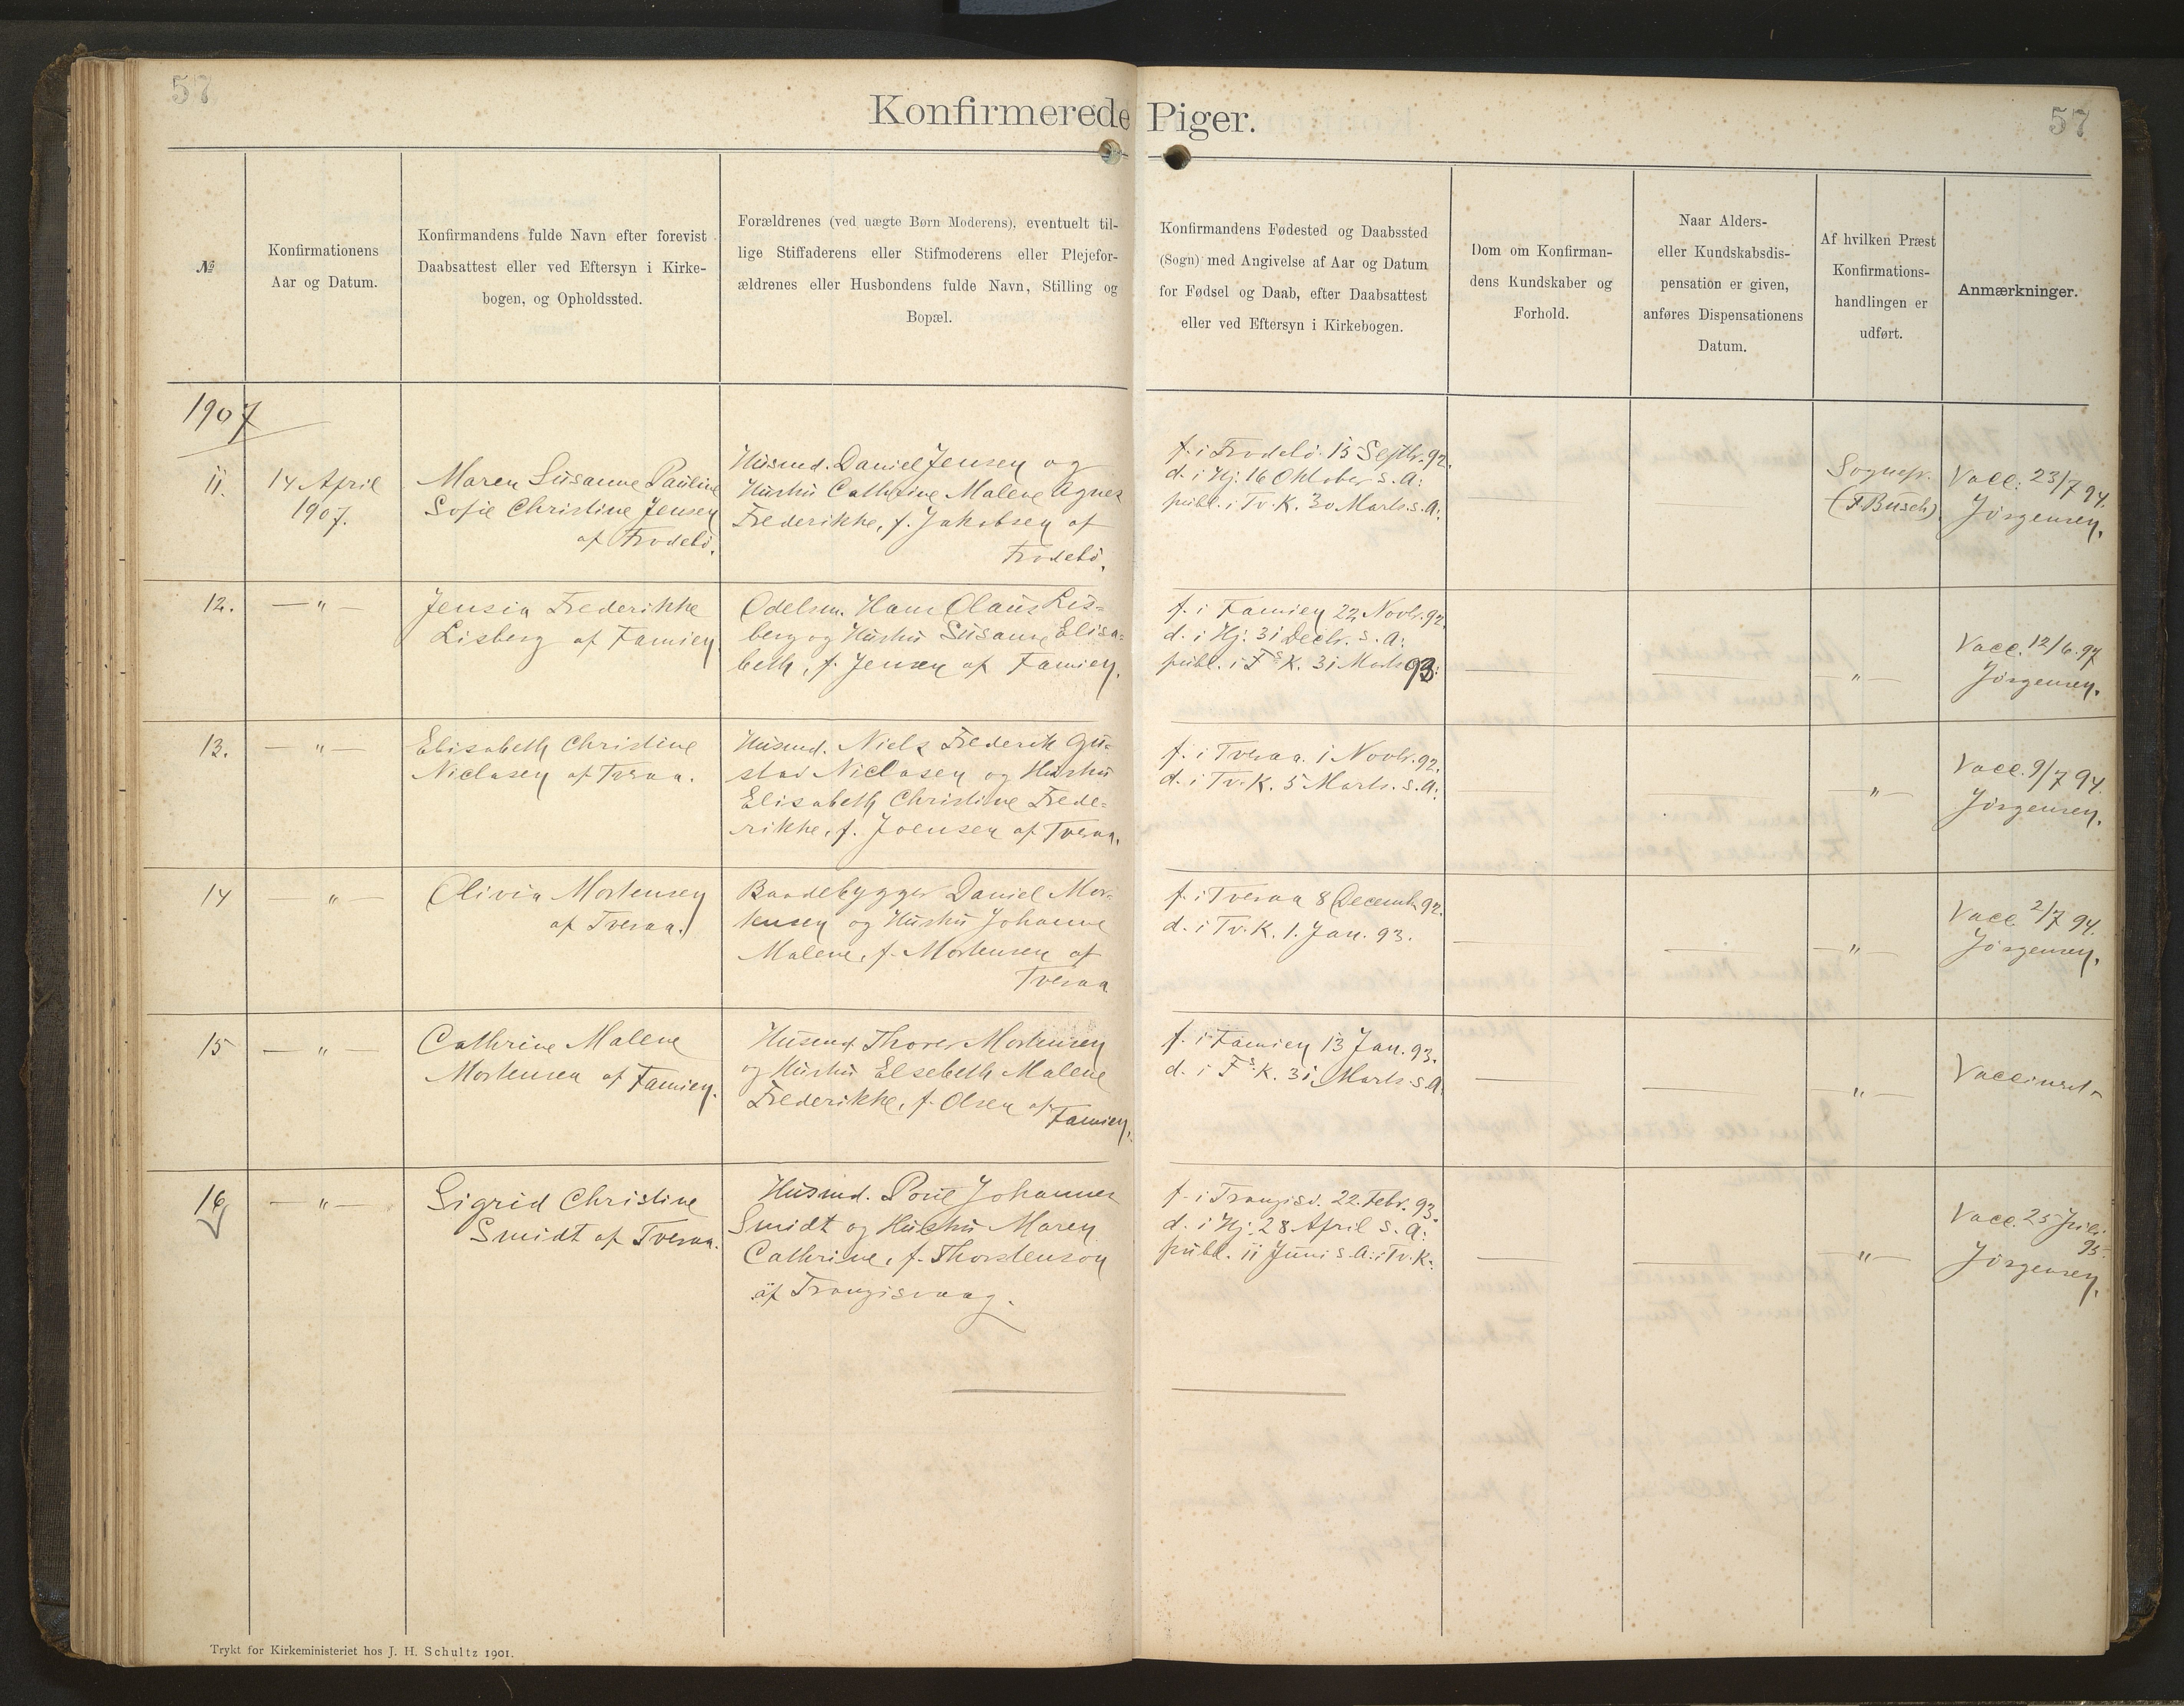 57
57
Konfirmerede Piger.
№
Konfirmationens
Aar og Datum.
Konfirmandens fulde Navn efter forevist
Daabsattest eller ved Eftersyn i Kirke-
bogen, og Opholdssted.
Forældrenes (ved uægte Børn Moderens), eventuelt til-
lige Stiffaderens eller Stifmoderens eller Plejefor-
ældrenes eller Husbondens fulde Navn, Stilling og
Bopæl.
Konfirmandens Fødested og Daabssted
(Sogn) med Angivelse af Aar og Datum
for Fødsel og Daab, efter Daabsattest
eller ved Eftersyn i Kirkebogen.
Dom om Konfirman-
dens Kundskaber og
Forhold.
Naar Alders-
eller Kundskabsdis-
pensation er given,
anføres Dispensationens
Datum.
Af hvilken Præst
Konfirmations-
handlingen er
udført.
Anmærkninger.
1907
11.
14 April
1907.
Maren Susanne Pauline
Sofie Christine Jensen
af Frodebö.
Husmd. Daniel Jensen og
Hustru Cathrine Malene Agnes
Frederikke, f. Jakobsen af
Frodebö.
f. i Frodebö 15 Septbr. 92.
d. i Hj. 16 Oktober s. A:
publ. i Tv. K. 30 Marts s. A:
Sognepr.
(F. Busch)
Vacc. 23/7 94.
Jörgensen.
12.
— " —
Jensia Frederikke
Lisberg af Famien.
Odelsm. Hans Olaus Lis=
berg og Hustru Susanne Elisa=
beth, f. Jensen af Famien.
f. i Famien 22 Novbr. 92.
d. i Hj. 31 Decbr. s. A:
publ. i Fs K. 31 Marts 93:
— " —
Vacc. 12/6. 97
Jörgensen.
13.
— " —
Elisabeth Christine
Niclasen af Tveraa.
Husmd. Niels Frederik Gu=
stav Niclasen og Hustru
Elisabeth Christine Frede=
rikke, f. Joensen af Tveraa.
f. i Tveraa 1 Novbr. 92.
d. i Tv. K. 5 Marts. s. A:
— " —
Vacc. 9/7 94.
Jörgensen.
14
— " —
Olivia Mortensen
af Tveraa.
Baadebygger Daniel Mor=
tensen og Hustru Johanne
Malene, f. Mortensen af
Tveraa
f. i Tveraa 8 Decemb. 92.
d. i Tv. K. 1. Jan. 93.
— " —
Vacc 2/7 94.
Jörgensen.
15
— " —
Cathrine Malene
Mortensen af Famien.
Husmd. Thorer Mortensen
og Hustru Elsebeth Malene
Frederikke, f. Olsen af Famien.
f. i Famien 13 Jan. 93.
d. i Fs K. 31 Marts s. A.
— " —
Vaccineret
16
— " —
Sigrid Christine
Smidt af Tveraa.
Husmd. Poul Johannes
Smidt og Hustru Maren
Cathrine, f. Thorstenson
af Trangisvaag.
f. i Trangisv. 22. Febr. 93.
d. i Hj. 28 April s. A:
publ. 11 Juni s. A: i Tv. K:
— " —
Vacc. 25 Juli
95.
Jörgensen.
Trykt for Kirkeministeriet hos J. H. Schultz 1901.